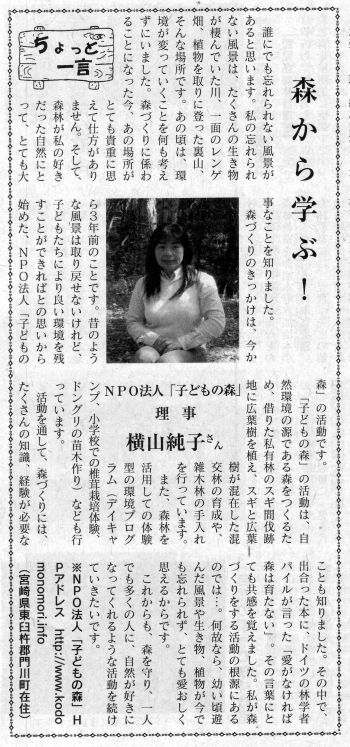 ちょっと
一言
森から学ぶ！
誰にでも忘れられない風景が
あると思います。私の忘れられ
ない風景は、たくさんの生き物
が棲んでいた川、一面のレンゲ
畑、植物を取りに登った裏山、
そんな場所です。あの頃は、環
境が変っていくことを何も考え
ずにいました。森づくりに係わ
ることになった今、あの場所が
とても貴重に思
えて仕方があり
ません。そして、
森林が私の好き
だった自然にと
って、とても大
事なことを知りました。
森づくりのきっかけは、今か
ら３年前のことです。昔のよう
な風景は取り戻せないけれど、
子どもたちにより良い環境を残
すことができればとの思いから
始めた、ＮＰＯ法人「子どもの
森」の活動です。
「子どもの森」の活動は、自
然環境の源である森をつくるた
め、借りた私有林のスギ間伐跡
地に広葉樹を植え、スギと広葉
樹が混在した混
交林の育成や、
雑木林の手入れ
を行っています。
また、森林を
活用しての体験
型の環境プログ
ラム（デイキャ
ンプ、小学校での椎茸栽培体験、
ドングリの苗木作り）なども行
っています。
活動を通して、森づくりには、
たくさんの知識、経験が必要な
ＮＰＯ法人「子どもの森」
理 事
横山純子さん
ことも知りました。その中で、
出合った本に、ドイツの林学者
パイルが言った「愛がなければ
森は育たない」。その言葉にと
ても共感を覚えました。私が森
づくりをする活動の根源にある
のでは…。何故なら、幼い頃遊
んだ風景や生き物、植物が今で
も忘れられず、とても愛おしく
思えるからです。
これからも、森を守り、人
でも多くの人に、自然が好きに
なってくれるような活動を続け
ていきたいです。
※ＮＰＯ法人「子どもの森」Ｈ
Ｐアドレス http://www.kodo
monomori.info
（宮崎県東臼杵郡門川町在住）